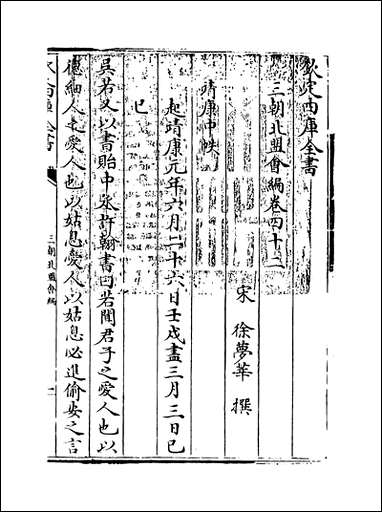 欽定四庫全書
三朝北盟會編卷四十二
宋 徐夢莘 撰
靖康中帙
起靖康元年六月二十六日壬戌盡三月三日己
巳
吳若又以書貽中丞許翰書曰若聞君子之愛人也以
德細人之愛人也以姑息愛人以姑息必進偷安之言
三朝北盟會編